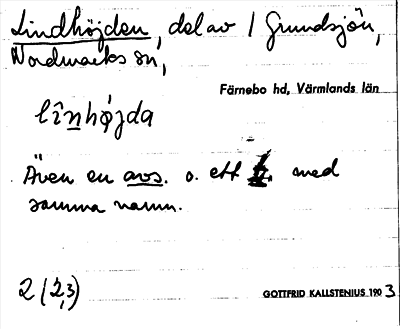 Lindhöjden, del av / Grundsjön,
Nordmarks sn,
Färnebo hd, Värmlands län
Även en avs. o. ett med
samma namn.
2 (2,3)
GOTTFRID KALLSTENIUS 1903